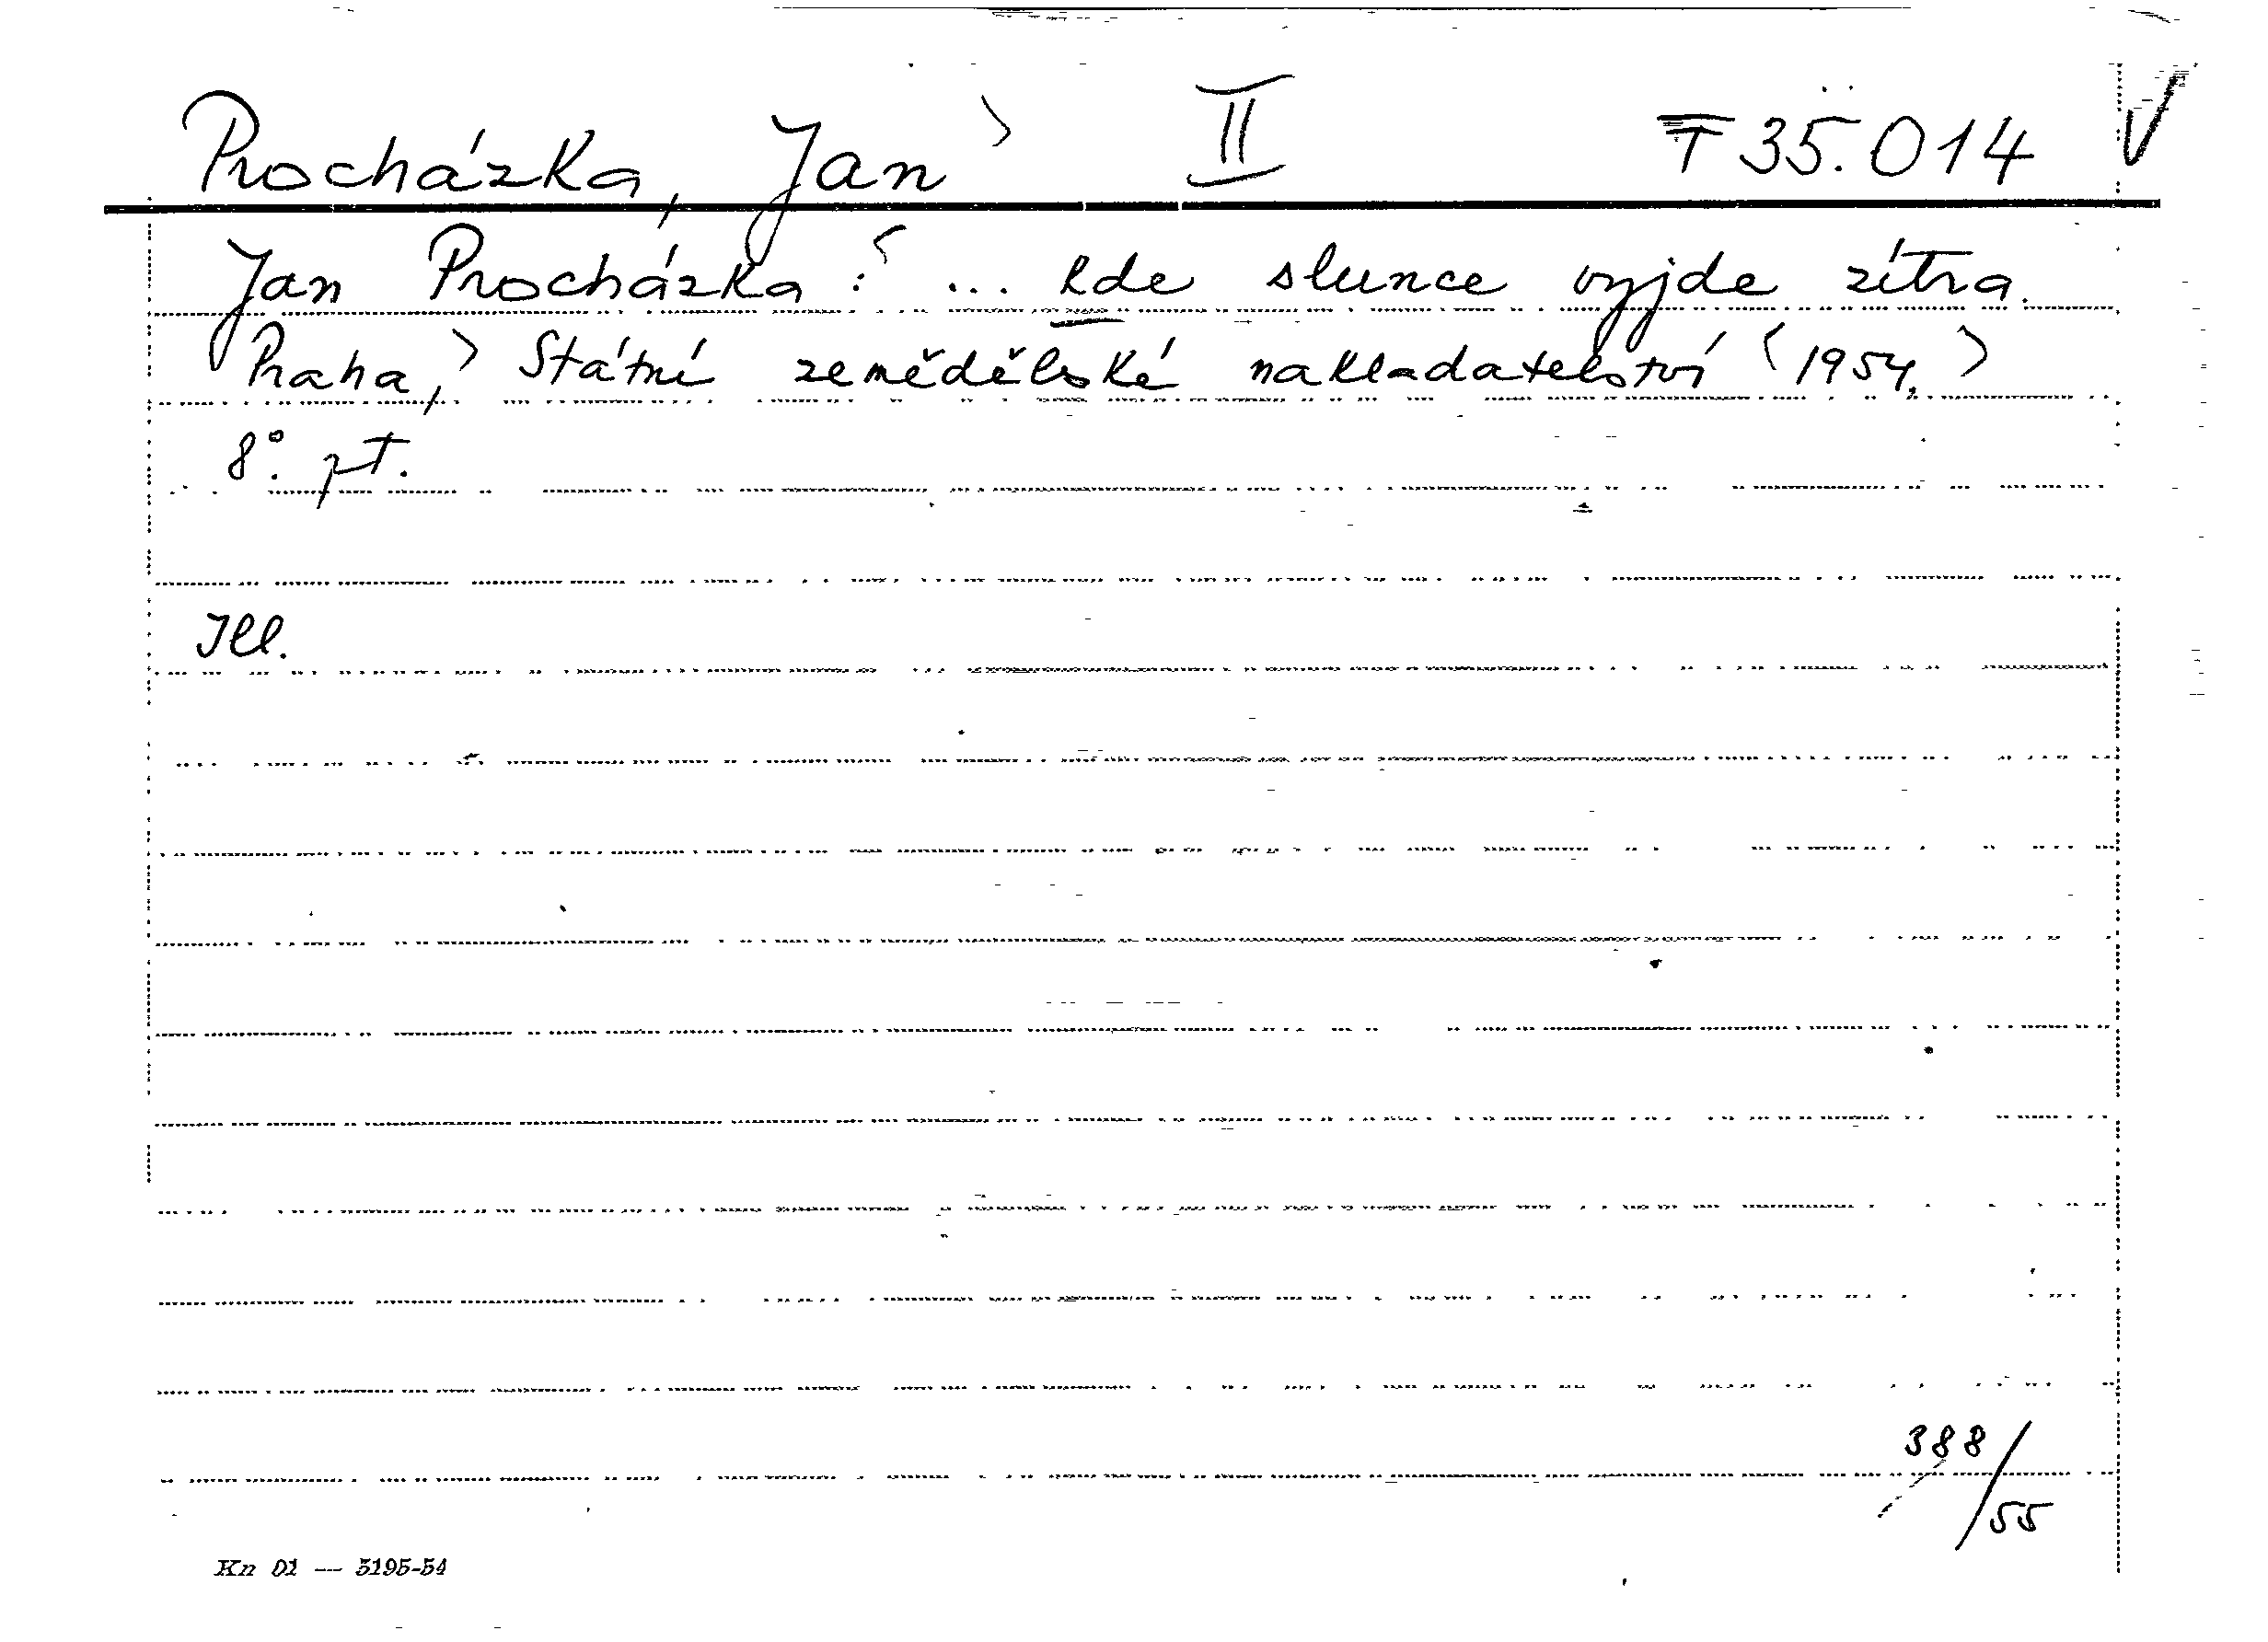 Procházka, Jan〉 II T 35.014 V
Jan Procházka :〈 ... kde slunce vyjde zítra.
Praha,〉 Státní zemědělské nakladatelství 〈1954.〉
8°. pt.
Ill.
388/55
Kn 01 — 5195-54